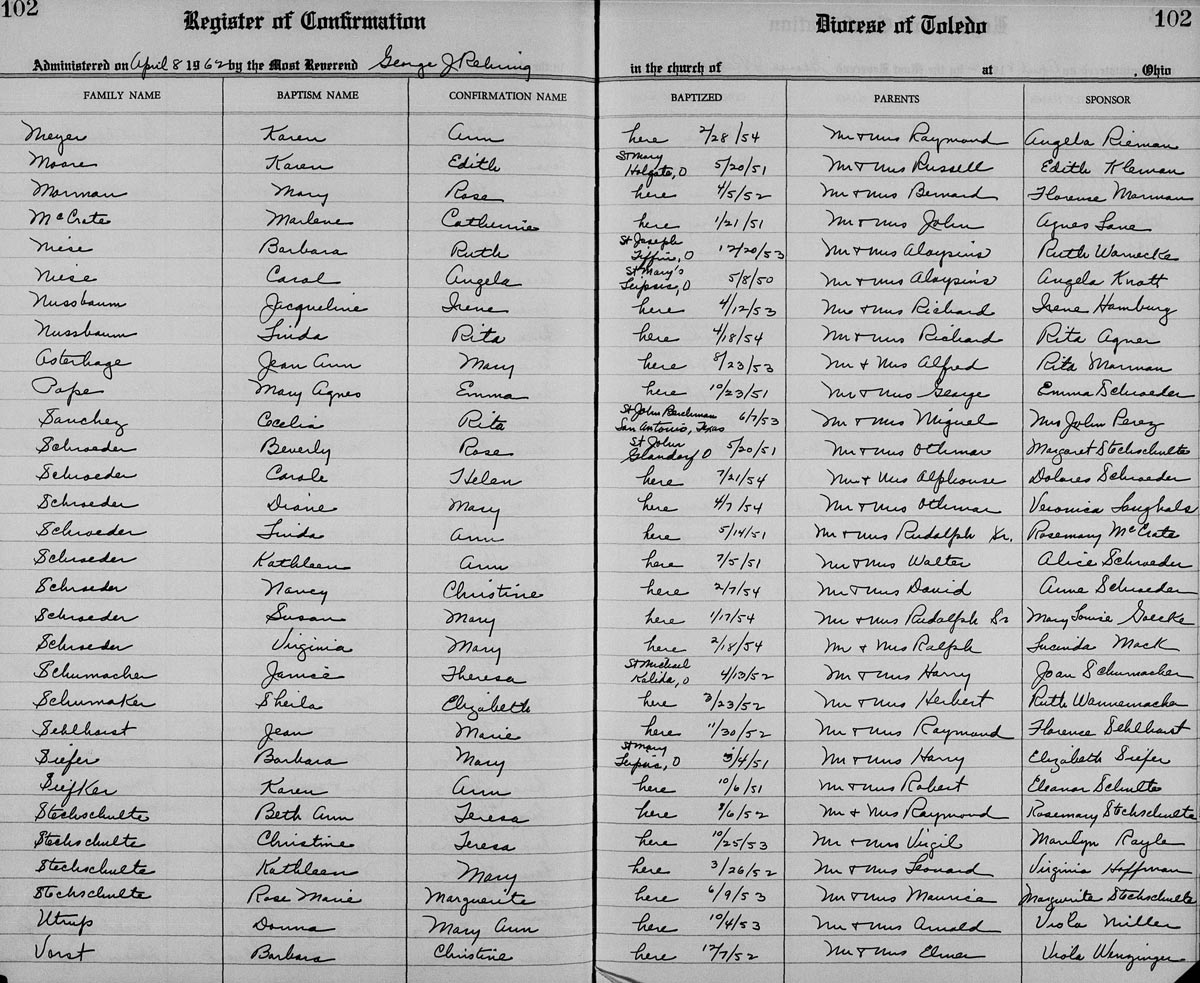 102 Register of Confirmation Diocese of Toledo 102
Administered on April 8 1962 by the Most Reverend George J Rehring in the church of at , Ohio
FAMILY NAME BAPTISM NAME CONFIRMATION NAME BAPTIZED PARENTS SPONSOR
Meyer Karen Ann here 2/28/54 Mr + Mrs Raymond Angela Rieman
Moore Karen Edith St Mary Holgate, O 5/20/51 Mr + Mrs Russell Edith Kleman
Morman Mary Rose here 4/5/52 Mr + Mrs Bernard Florence Morman
McCrate Marlene Catherine here 1/21/51 Mr + Mrs John Agnes Lane
Niese Barbara Ruth St Joseph Tiffin, O 12/20/53 Mr + Mrs Aloysius Ruth Warnecke
Niese Carol Angela St Mary's Leipsic, O 5/8/50 Mr + Mrs Aloysius Angela Knott
Nussbaum Jacqueline Irene here 4/12/53 Mr + Mrs Richard Irene Hamburg
Nussbaum Linda Rita here 4/18/54 Mr + Mrs Richard Rita Agner
Osterhage Jean Ann Mary here 8/23/53 Mr + Mrs Alfred Rita Morman
Pope Mary Agnes Emma here 10/23/51 Mr + Mrs George Emma Schroeder
Sanchez Cecelia Rita St John Berchman San Antonio, Texas 6/7/53 Mr + Mrs Miguel Mrs John Perez
Schroeder Beverly Rose St John Glandorf O 5/20/51 Mr + Mrs Othmar Margaret Stechschulte
Schroeder Carole Helen here 7/21/54 Mr + Mrs Alphonse Dolores Schroeder
Schroeder Diane Mary here 4/7/54 Mr + Mrs Othmar Veronica Laughals
Schroeder Linda Ann here 5/14/51 Mr + Mrs Rudolph Sr. Rosemary McCrate
Schroeder Kathleen Ann here 7/5/51 Mr + Mrs Walter Alice Schroeder
Schroeder Nancy Christine here 2/7/54 Mr + Mrs David Anne Schroeder
Schroeder Susan Mary here 1/17/54 Mr + Mrs Rudolph Sr Mary Louise Goecke
Schroeder Virginia Mary here 2/18/54 Mr + Mrs Ralph Lucinda Mack
Schumacher Janice Theresa St Michael Kalida, O 4/13/52 Mr + Mrs Harry Joan Schumacher
Schumaker Sheila Elizabeth here 3/23/52 Mr + Mrs Herbert Ruth Wannemacher
Sehlhorst Jean Marie here 11/30/52 Mr + Mrs Raymond Florence Sehlhorst
Siefer Barbara Mary St Mary Leipsic, O 3/4/51 Mr + Mrs Harry Elizabeth Siefer
Siefker Karen Ann here 10/6/51 Mr + Mrs Robert Eleanor Schulte
Stechschulte Beth Ann Teresa here 8/6/52 Mr + Mrs Raymond Rosemary Stechschulte
Stechschulte Christine Teresa here 10/25/53 Mr + Mrs Virgil Marilyn Rayle
Stechschulte Kathleen Mary here 3/26/52 Mr + Mrs Leonard Virginia Hoffman
Stechschulte Rose Marie Marguerite here 6/9/53 Mr + Mrs Maurice Marguerite Stechschulte
Utrup Donna Mary Ann here 10/4/53 Mr + Mrs Arnold Viola Miller
Vorst Barbara Christine here 12/7/52 Mr + Mrs Elmer Viola Wenzinger